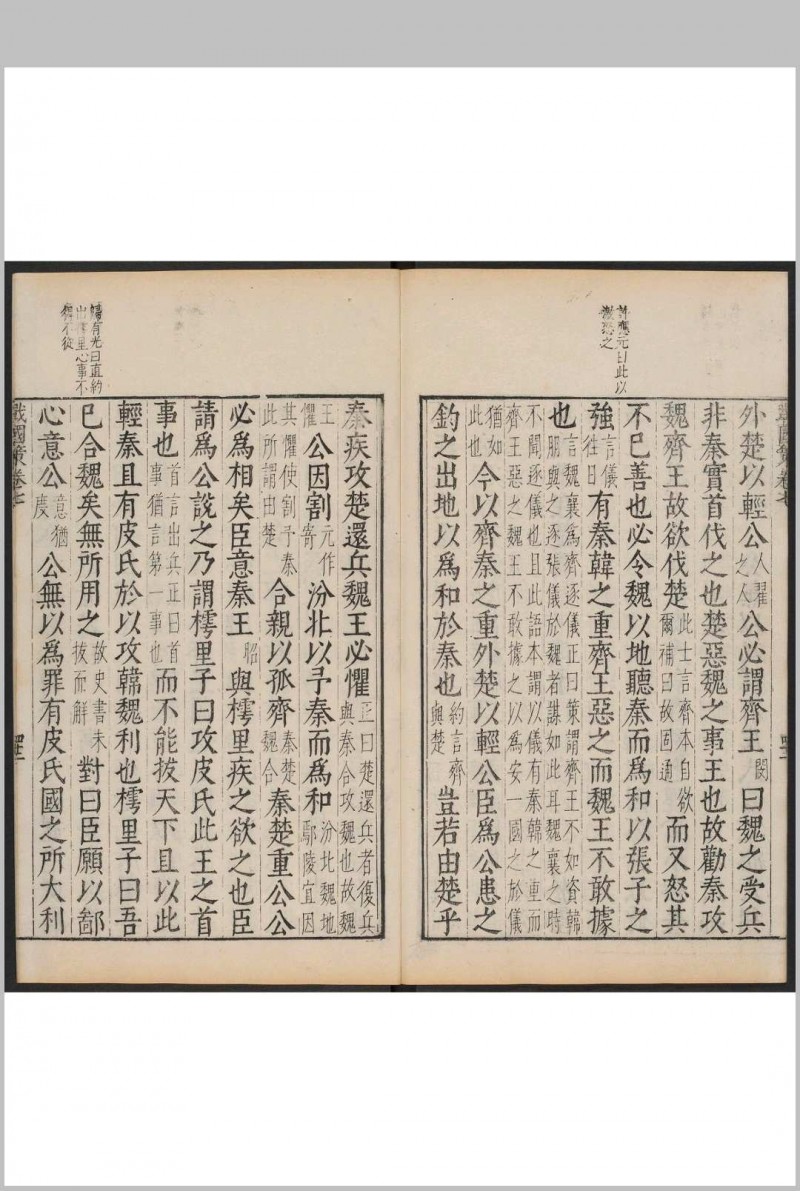 外楚以輕公人翟之人公必謂齊王閔曰魏之受兵
非秦實首伐之也楚惡魏之事王也故勸秦攻
魏齊王故欲伐楚此士言齊本自欲爾補曰故固通而又怒其
不已善也必令魏以地聽秦而為和以張子之
強言儀往日有秦韓之重齊王惡之而魏王不敢據
也言魏襄為齊逐儀正曰策謂齊王不如資韓朋與之逐張儀於魏者謀如此耳魏襄之時
不聞逐儀也且此語本謂以儀有秦韓之重而齊王惡之魏王不敢據之以為安一國之於儀
猶如此也今以齊秦之重外楚以輕公臣為公患之
鈞之出地以為和於秦也約言齊與楚豈若由楚乎
秦疾攻楚還兵魏王必懼正曰楚還兵者復兵與秦合攻魏也故魏
王懼公因割元作寄汾北以予秦而為和汾北魏地鄢陵宜因
其懼使割予秦此所謂由楚合親以孤齊秦楚魏合秦楚重公公
必為相矣臣意秦王昭與樗里疾之欲之也臣
請為公說之乃謂樗里子曰攻皮氏此王之首
事也首言出兵正曰首事猶言第一事也而不能拔天下且以此
輕秦且有皮氏於以攻韓魏利也樗里子曰吾
已合魏矣無所用之故史書未拔而解對曰臣願以鄙
心意公意猶慶公無以為罪有皮氏國之所大利
戰國策卷七